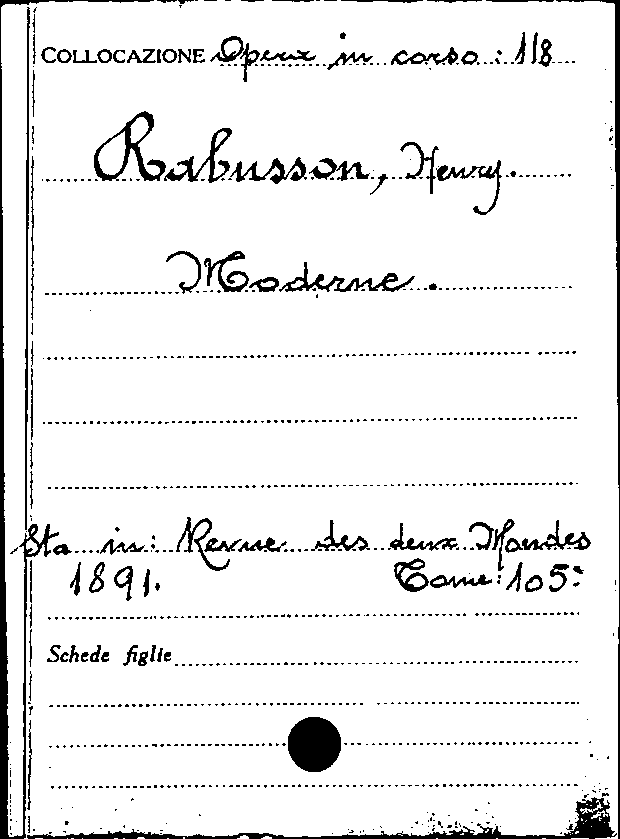 COLLOCAZIONE Opera in corso: 118
Rabusson, Henry.
Moderne.
Sta in: Revue des deux Mondes
1891. Tome: 105:
Schede figlie